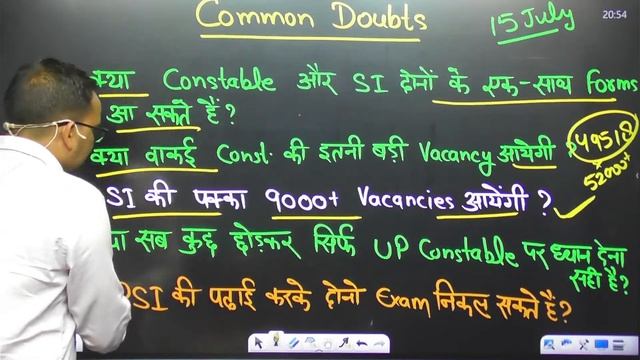 Common Doubts
15 July
20:54
क्या Constable और SI दोनों के एक-साथ Forms
आ सकते हैं?
क्या वाकई Const. की इतनी बड़ी Vacancy आयेगी ?
49518
52000+
SI की पक्का 9000+ Vacancies आयेंगी ?
सब कुछ छोड़कर सिर्फ UP Constable पर ध्यान देना
सही है?
SI की पढाई करके दोनो Exam निकल सकते हैं?